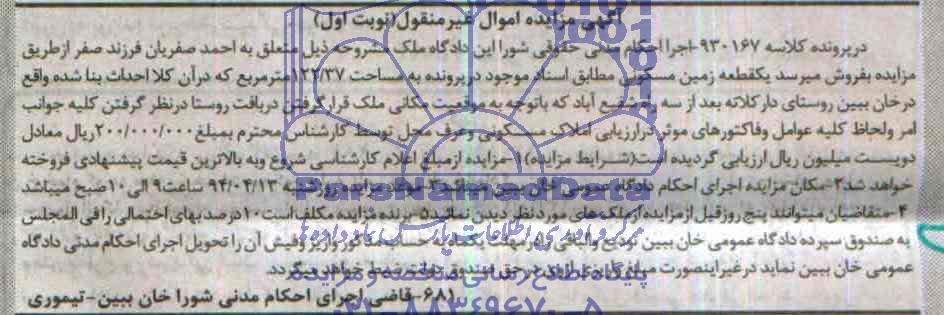 آگهی مزایده اموال غیرمنقول(نوبت اول)
درپرونده کلاسه ۹۳۰۱۶۷-اجرا احکام مدنی حقوقی شورا این دادگاه ملک مشروحه ذیل متعلق به احمد صفریان فرزند صفر ازطریق
مزایده بفروش میرسد یکقطعه زمین مسکونی مطابق اسناد موجود درپرونده به مساحت ۱۲۲/۳۷مترمربع که درآن کلا احداث بنا شده واقع
درخان ببین روستای دارکلاته بعد از سه راه شفیع آباد که باتوجه به موقعیت مکانی ملک قرارگرفتن دربافت روستا درنظر گرفتن کلیه جوانب
امر ولحاظ کلیه عوامل وفاکتورهای موثر درارزیابی املاک مسکونی وعرف محل توسط کارشناس محترم بمبلغ۲۰۰/۰۰۰/۰۰۰ریال معادل
دویست میلیون ریال ارزیابی گردیده است(شرایط مزایده)۱-مزایده ازمبلغ اعلام کارشناسی شروع وبه بالاترین قیمت پیشنهادی فروخته
خواهد شد۲-مکان مزایده اجرای احکام دادگاه عمومی خان ببین میباشد۳-موعد مزایده روزشنبه ۹۴/۰۴/۱۳ ساعت۹ الی ۱۰صبح میباشد
۴-متقاضیان میتوانند پنج روزقبل ازمزایده ازملک های مورد نظر دیدن نمائید۵-برنده مزایده مکلف است۱۰درصد بهای احتمالی را فی المجلس
به صندوق سپرده دادگاه عمومی خان ببین تودیع والباقی را درمهلت یکماه به حساب مذکور واریز وفیش آن را تحویل اجرای احکام مدنی دادگاه
عمومی خان ببین نماید درغیراینصورت مبلغ خواهد گردید.
۶۸۱-قاضی اجرای احکام مدنی شورا خان ببین-تیموری
ParsNamadData
مرکز فرآوری اطلاعات پارس نماد داده ها
پایگاه اطلاع رسانی مناقصه و مزایده
۰۲۱-۸۸۳۴۹۶۷۰-۵